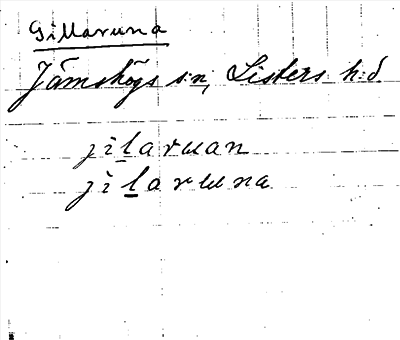 Gillaruna
Jämshögs s:n, Listers h:d
jilaruan
jilaruna